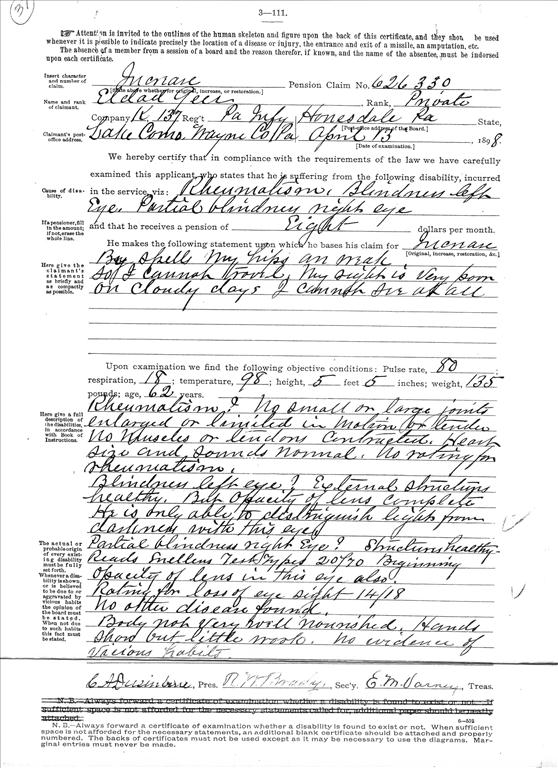 3—111.
Attention is invited to the outlines of the human skeleton and figure upon the back of this certificate, and they should be used
whenever it is possible to indicate precisely the location of a disease or injury, the entrance and exit of a missile, an amputation, etc.
The absence of a member from a session of a board and the reason therefor, if known, and the name of the absentee, must be indorsed
upon each certificate.
Insert character and number of claim.
Increase Pension Claim No. 626330
[State above whether for original, increase, or restoration.]
Name and rank of claimant.
Eldad Rank, Private
Company K, 137 Reg't Pa Infy Honesdale Pa State,
[Post-office address of the Board.]
Claimant's post-office address.
Lake Como Wayne Co Pa April 13, 1898.
[Date of examination.]
We hereby certify that in compliance with the requirements of the law we have carefully
examined this applicant, who states that he is suffering from the following disability, incurred
Cause of disability.
in the service, viz: Rheumatism. Blindness left
Eye. Partial blindness right eye
If a pensioner, fill in the amount; if not, erase the whole line.
and that he receives a pension of Eight dollars per month.
He makes the following statement upon which he bases his claim for Increase
[Original, increase, restoration, &c.]
Here give the claimant's statement as briefly and as compactly as possible.
By spells my hips an weak
So I cannot My sight is very poor
on cloudy days I cannot see at all
Upon examination we find the following objective conditions: Pulse rate, 80
respiration, 18; temperature, 98; height, 5 feet 5 inches; weight, 135
pounds; age, 62 years.
Here give a full description of the disabilities, in accordance with Book of Instructions.
Rheumatism? No small or large joints
enlarged or limited in motion or tender
No Muscles or tendons Contracted. Heart
size and sounds normal. No rating for
rheumatism.
Blindness left eye? External structures
healthy. But opacity of lens complete
He is only able to distinguish light from
darkness with this eye
The actual or probable origin of every existing disability must be fully set forth.
Partial blindness right Eye? Structures healthy
Reads Snellens Test Types 20/70 Beginning
Opacity of lens in this eye also.
Whenever a disability is shown, or is believed to be due to or aggravated by vicious habits the opinion of the board must be stated. When not due to such habits this fact must be stated.
Rating for loss of eye sight 14/18
No other disease found.
Body not very well nourished. Hands
show but little work. No evidence of
Vicious habits
Pres. Sec'y. E. M. Varney, Treas.
N. B.—Always forward a certificate of examination whether a disability is found to exist or not. If
sufficient space is not afforded for the necessary statements called for, additional paper should be neatly
attached.
6—552
N. B.—Always forward a certificate of examination whether a disability is found to exist or not. When sufficient
space is not afforded for the necessary statements, an additional blank certificate should be attached and properly
numbered. The backs of certificates must not be used except as it may be necessary to use the diagrams. Mar-
ginal entries must never be made.